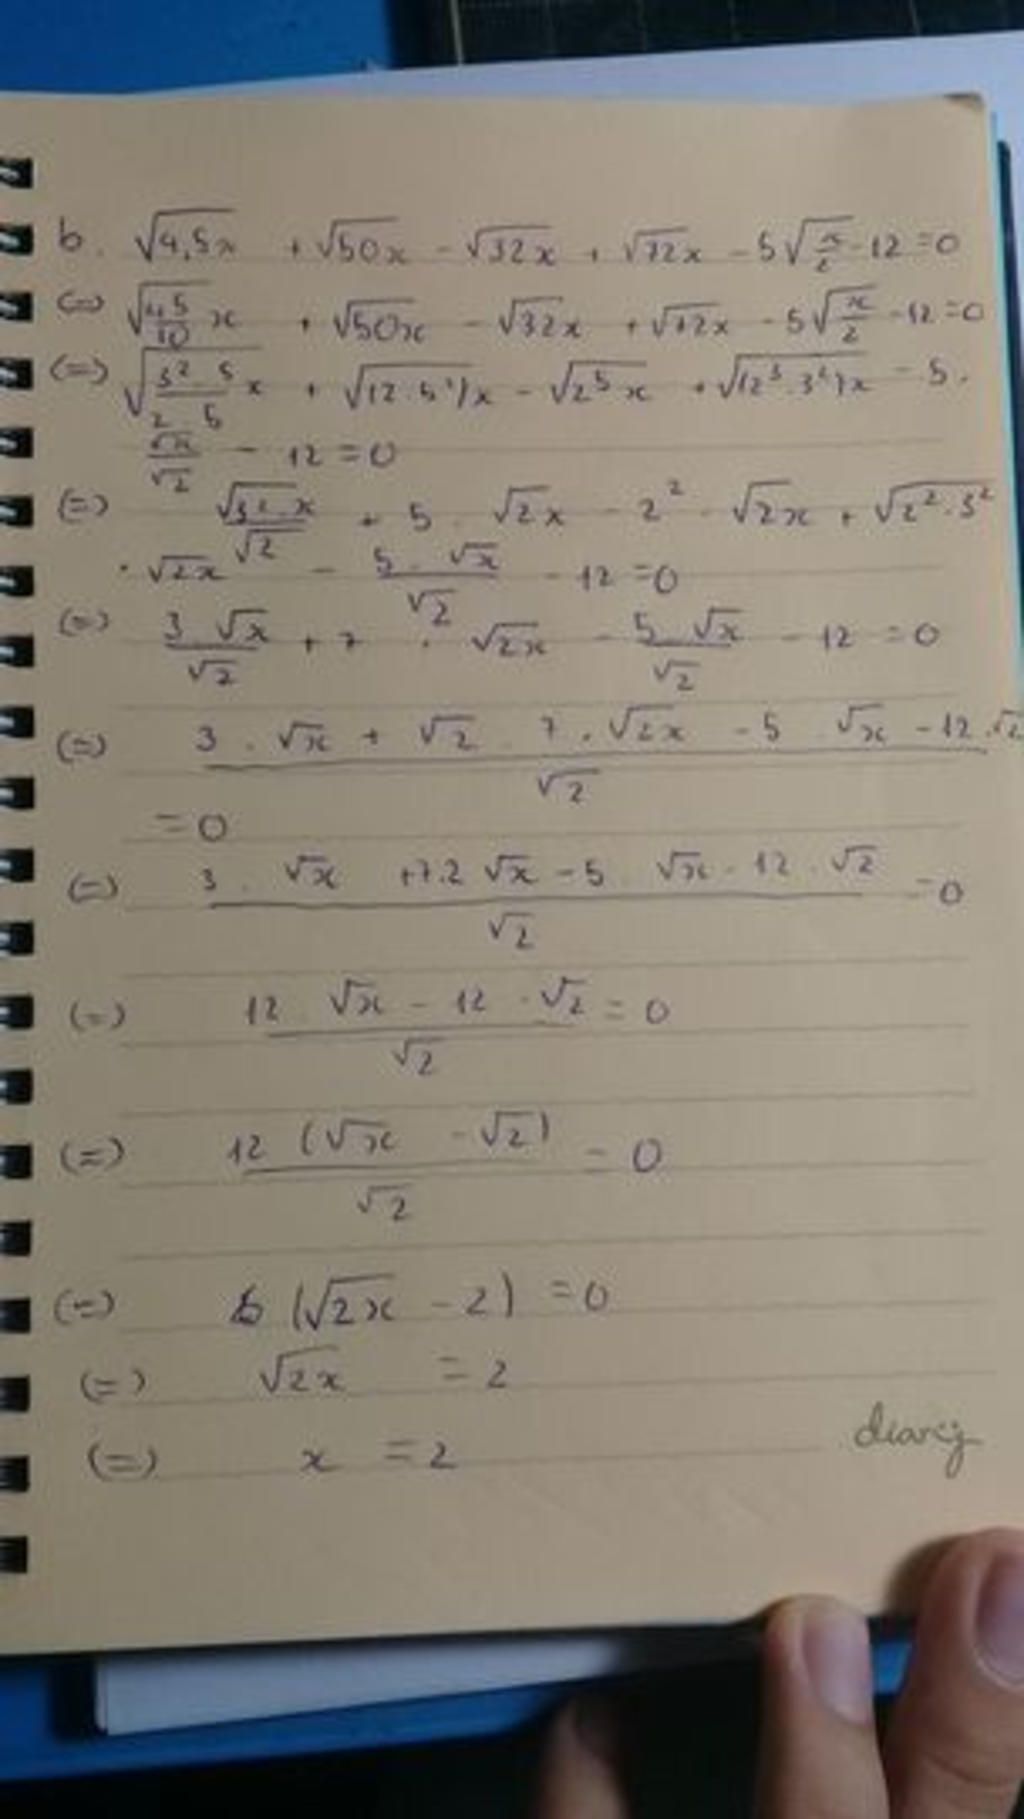 b. √4,5x + √50x - √32x + √72x - 5√x/2 - 12 = 0
(=) √45/10 x + √50x - √32x + √72x - 5√x/2 - 12 = 0
(=) √3². 5/2 . 5 x + √(2.5²)x - √2⁵x + √(2³.3²)x - 5.
√x/√2 - 12 = 0
(=) √3² x/√2 + 5 . √2x - 2² . √2x + √2².3²
. √2x - 5 . √x/√2 - 12 = 0
(=) 3 √x/√2 + 7 . √2x - 5 √x/√2 - 12 = 0
(=) 3 . √x + √2 . 7 . √2x - 5 . √x - 12.√2/√2
= 0
(=) 3 . √x + 7.2 √x - 5 . √x - 12 . √2/√2 = 0
(=) 12 . √x - 12 . √2/√2 = 0
(=) 12 (√x - √2)/√2 = 0
(=) 6 (√2x - 2) = 0
(=) √2x = 2
(=) x = 2
diary